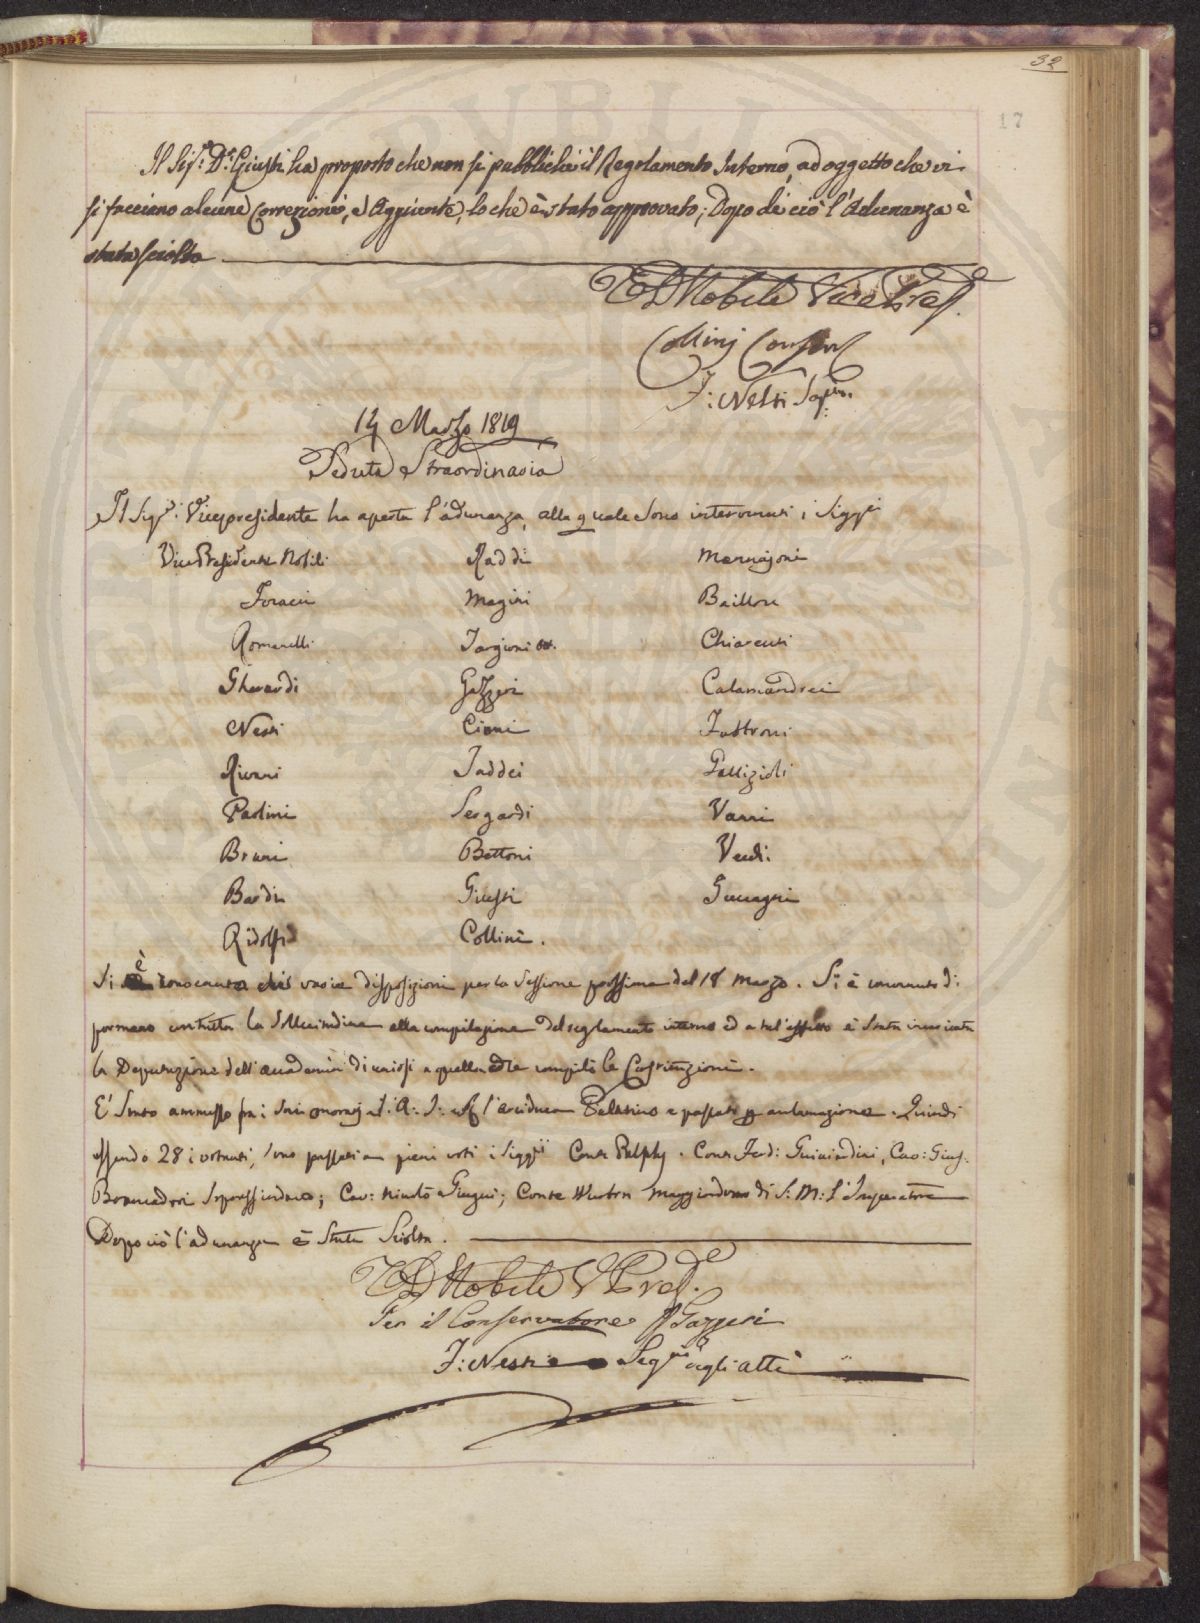 32
17
Il Sig.r D.r Giusti ha proposto che non si pubblichi il Regolamento Interno, ad oggetto che vi
si facciano alcune Correzioni, e Aggiunte, lo che è stato approvato; Dopo di ciò l'Adunanza è
stata sciolta
Nobili Vice Pres.
Collini Conserv
F: Nesti Seg.rio
14 Marzo 1819
Seduta Straordinaria
Il Sig.r Vicepresidente ha aperta l'adunanza, alla quale sono intervenuti i Sigg.ri
Vice Presidente Nobili Raddi Mannajoni
Foraci Magini Baillou
Romanelli Targioni Ott. Chiarenti
Gherardi Gazzeri Calamandrei
Nesti Cioni Fabbroni
Rivani Taddei Gallizioli
Paolini Sergardi Vanni
Bruni Bettoni Verdi.
Bardi Giusti Guicciagni
Ridolfi Collini.
Si è varie disposizioni per la Sessione prossima del 18 Marzo. Si è convenuto di
la Sollecitudine alla compilazione del reglamento interno ed a tal'effetto è stata incaricata
la Deputazione dell'accademia di a quella che compilò le Costituzioni.
E' stato ammesso fra i Soci onoraj S. A. I. l'arciduca Palatino e passato per acclamazione. Quindi
essendo 28 i votanti, sono passati a pieni voti i Sigg.ri Conte Palphy. Conte Ferd: Guicciardini, Cav: Gius.
Brancadori Soprassindaco; Cav: Conte Maggiordomo di S: M: L'Imperatore
Dopo ciò l'adunanza è stata Sciolta.
Nobili V Pres.
Per il Conservatore Gazzeri
F: Nesti Seg.rio degli atti